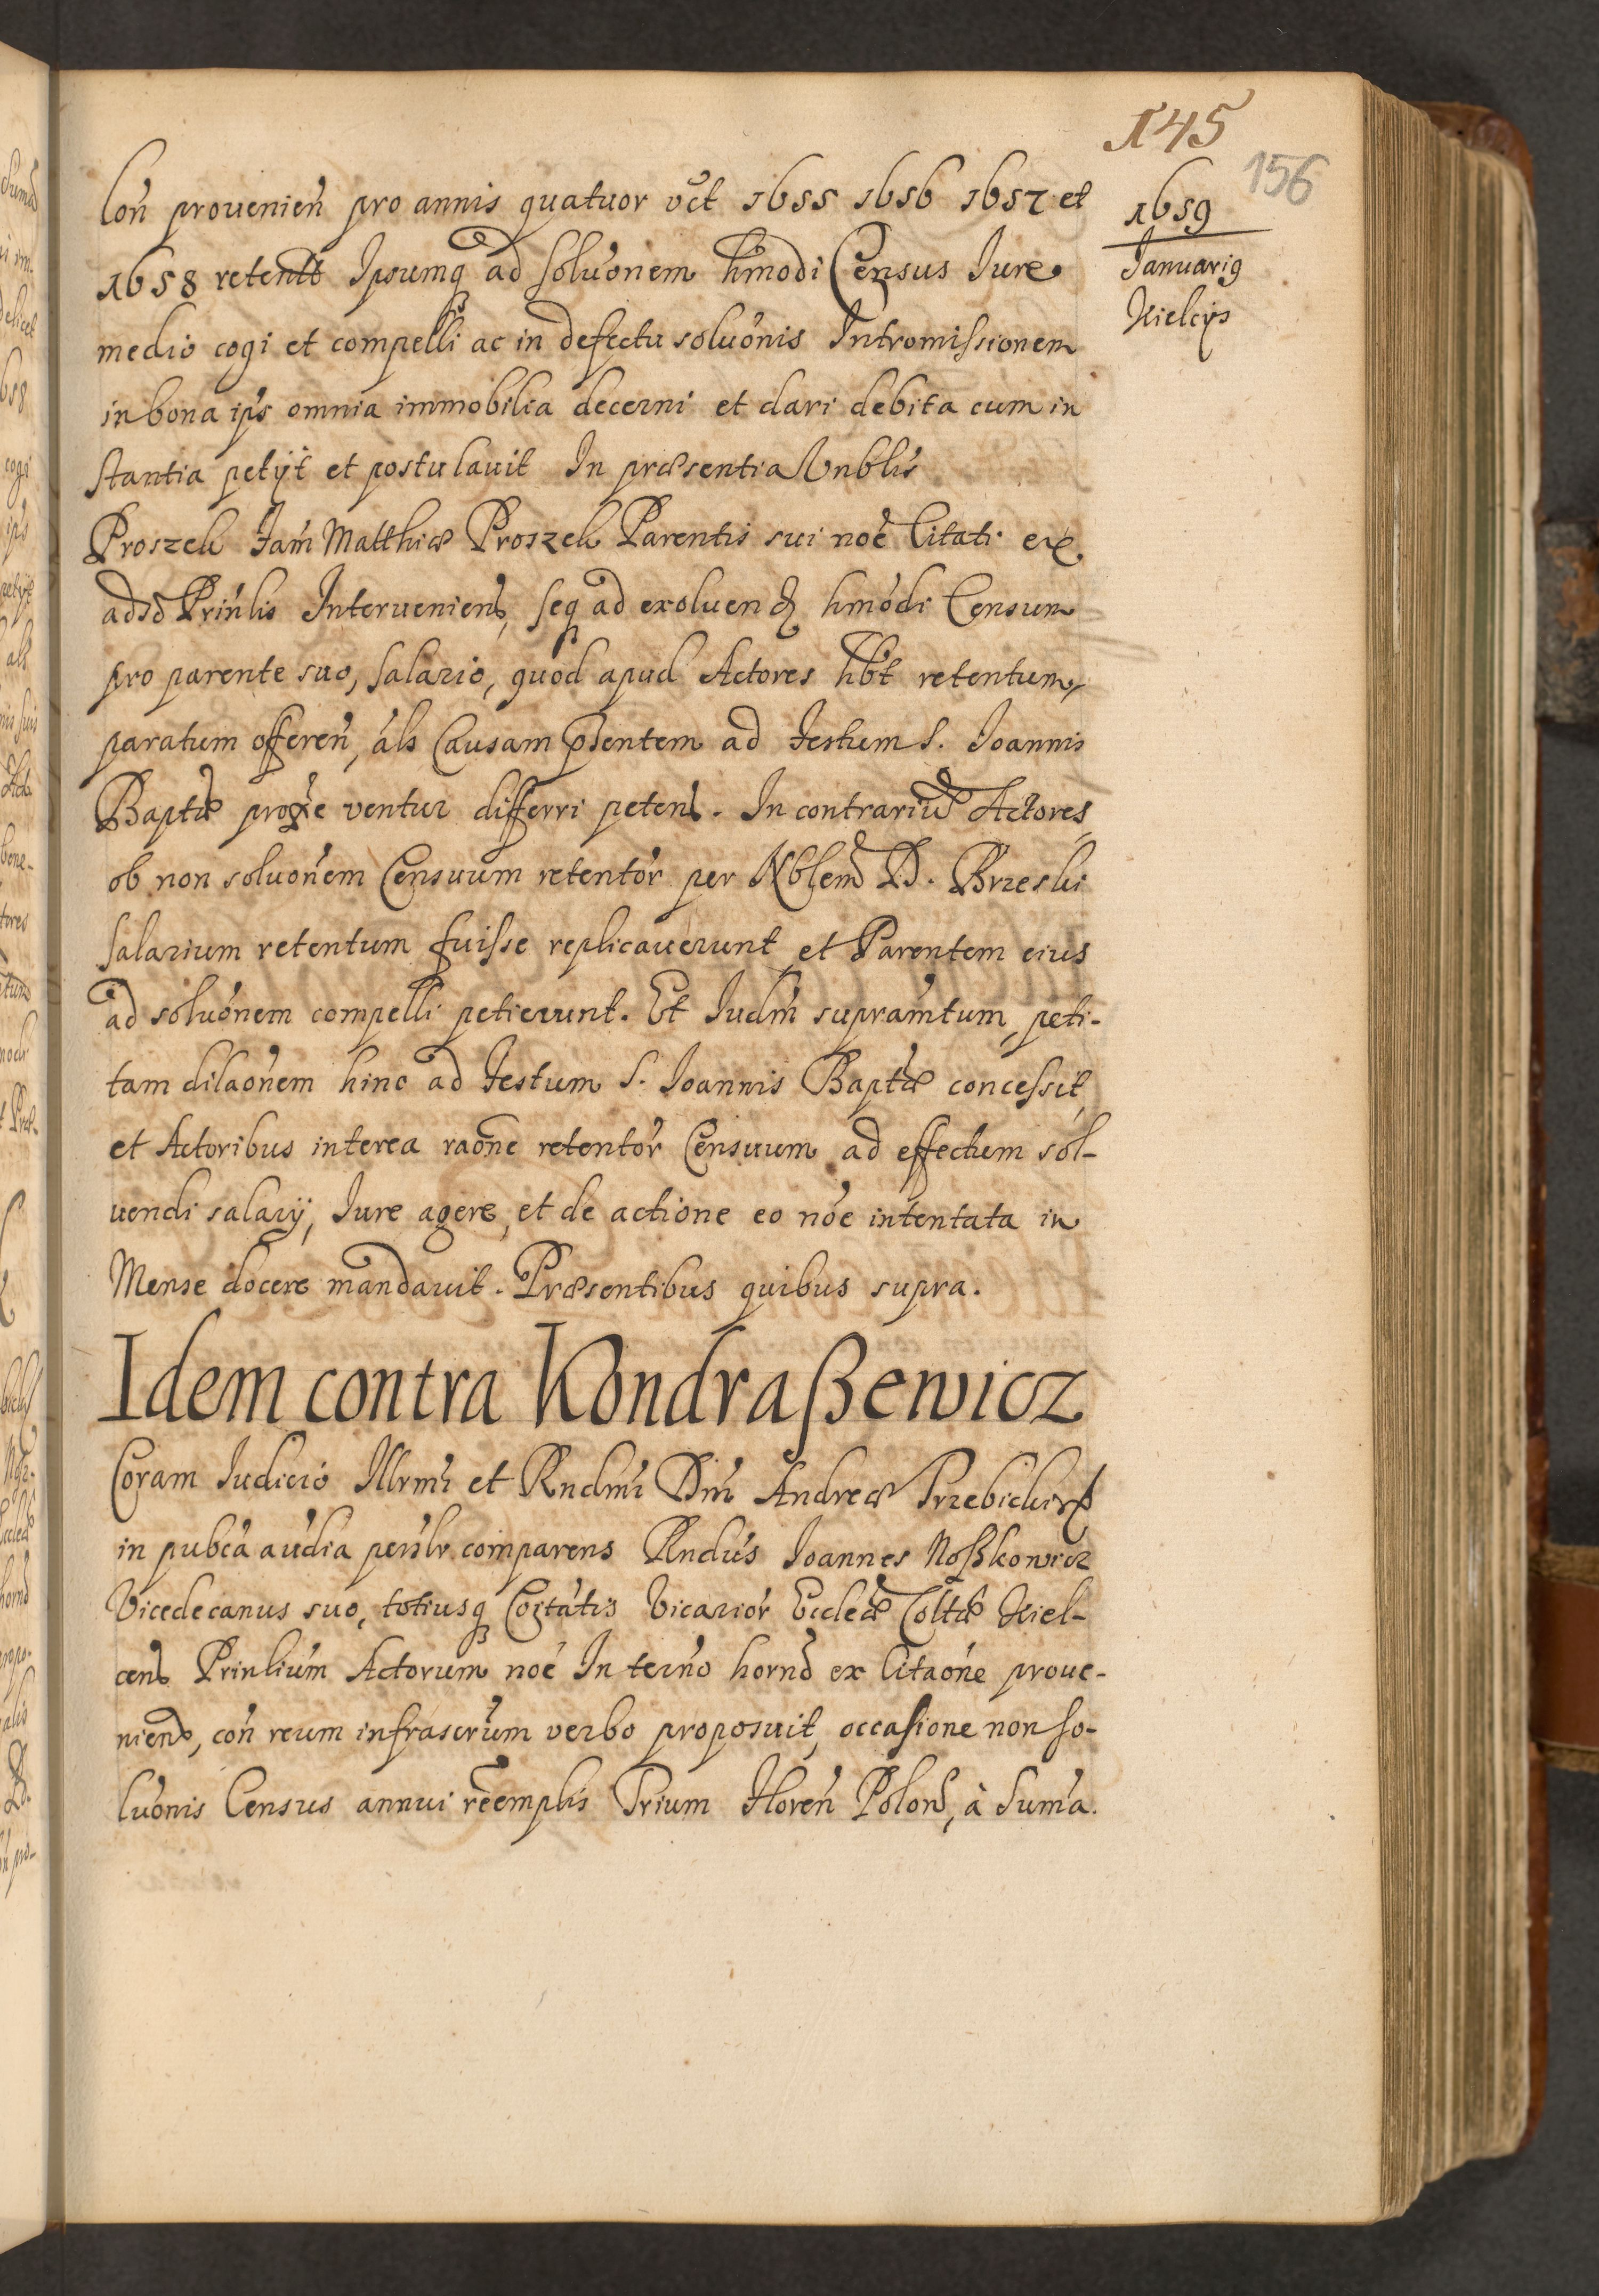 145
156
1659
Januarig
Kielcys
loñ prouenien̄ pro annis quatuor vc̄t 1655 1656 1657 et
1658 retentt Ipsumq̨ ad soluōnem hmōdi Census Iure
medio cogi et compelli ac in defectu soluōnis Intromissionem
in bona ip̄s omnia immobilia decerni et dari debita cum in
stantia petijt et postulauit In præsentia Vnblīs
Proszek Fam̄ Matthiæ Proszek Parentis sui noē Citati
adsd Prin̄lis Interueniens, seq̨ ad exoluend hmōdi Censum
pro parente suo, salario, quod apud Actores hb̄t retentum,
paratum offeren̄, al̄s Causam pn̄sentem ad Festum S. Joannis
Baptæ proxīe ventur differri petens. In contrariū Actores,
ob non soluōnem Censuum retentōr per Nblem D. Brzeski
salarium retentum fuisse replicauerunt et Parentem eius
ad soluōnem compelli petierunt. Et Iudm̄ supram̄tum, peti-
tam dilaōnem hinc ad Festum S. Joannis Baptæ concessit,
et Actoribus interea raōne retentōr Censuum ad effectum sol-
uendi salarij, Iure agere, et de actione eo noē intentata in
Mense docere mandauit. Præsentibus quibus supra.
Idem contra Kondraßewicz
Coram Iudicio Illrmī et Rndmī Dn̄i Andreæ Trzebicki
in pubcā audīa persl̄r comparens Rndūs Joannes Noßkowicz
Vicedecanus suo, totiusq̨ Coītātis Vicariōr Eccleæ Coltæ Kiel-
cens Prinliūm Actorum noē In ter̄no horno ex Citaōne proue-
niens, con̄ reum infrascrūm verbo proposuit, occasione non so-
luōnis Census annui reēmplis Trium Floren̄ Polon̄, à Sum̄a.